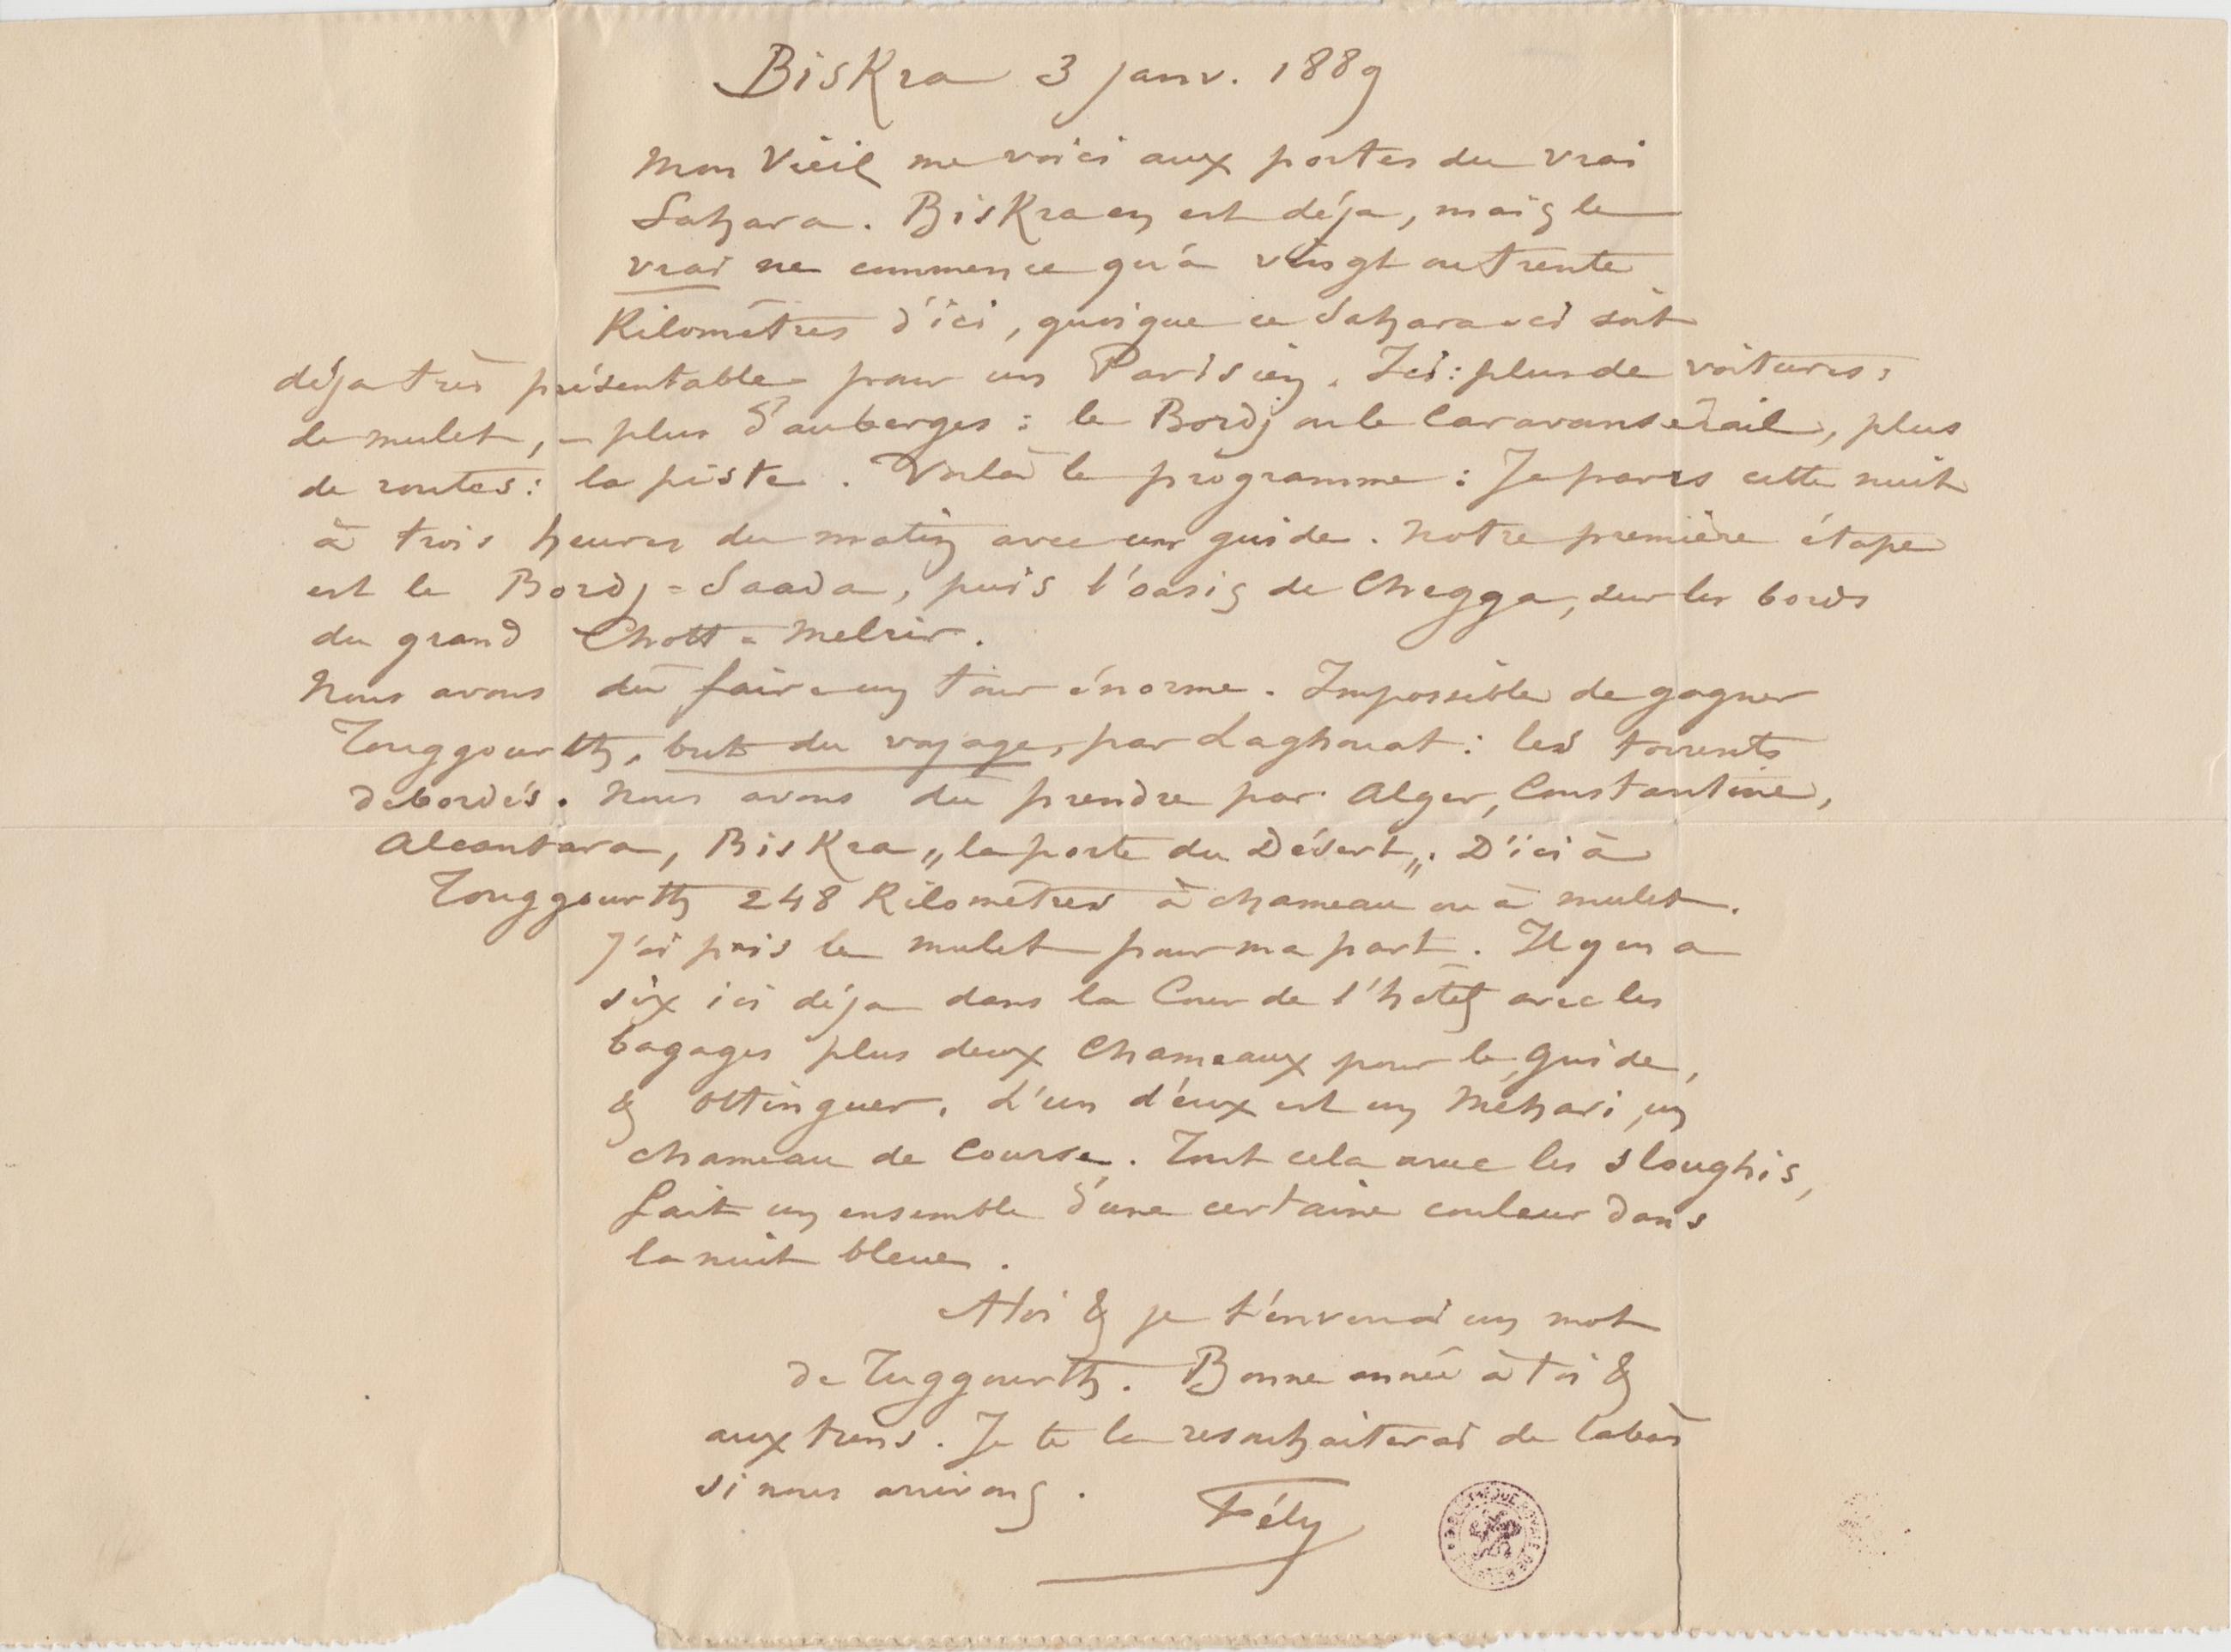 Biskra 3 janv. 1889
Mon Vieil me voici aux portes du vrai
Sahara. Biskra en est déja, mais le
vrai ne commence qu'à vingt ou trente
Kilomètres d'ici, quoique ce Sahara-ci soit
déja très présentable pour un Parisien. Ici : plus de voitures :
le mulet, – plus d'auberges : le Bordj ou le Caravansérail, plus
de routes : la piste. Voilà le programme : Je pars cette nuit
à trois heures du matin avec un guide. Notre première étape
est le Bordj-Saada, puis l'oasis de Chegga, sur les bords
du grand Chott-Melrir.
Nous avons dû faire un tour énorme. Impossible de gagner
Touggourth, but du voyage, par Laghouat : les torrents
débordés. Nous avons dû prendre par Alger, Constantine,
Alcantara, Biskra „la porte du Désert„. D'ici à
Touggourth 248 Kilomètres à chameau ou à mulet.
J'ai pris le mulet pour ma part. Il y en a
six ici déja dans la Cour de l'hôtel avec les
bagages plus deux Chameaux pour le guide,
& Ottinguer. L'un d'eux est un Méhari, un
chameau de Course. Tout cela avec les sloughis,
fait un ensemble d'une certaine couleur dans
la nuit bleue.
A toi & je t'enverrai un mot
de Tuggourth. Bonne année à toi &
aux tiens. Je te la resouhaiterai de labàs
si nous arrivons.
Fély